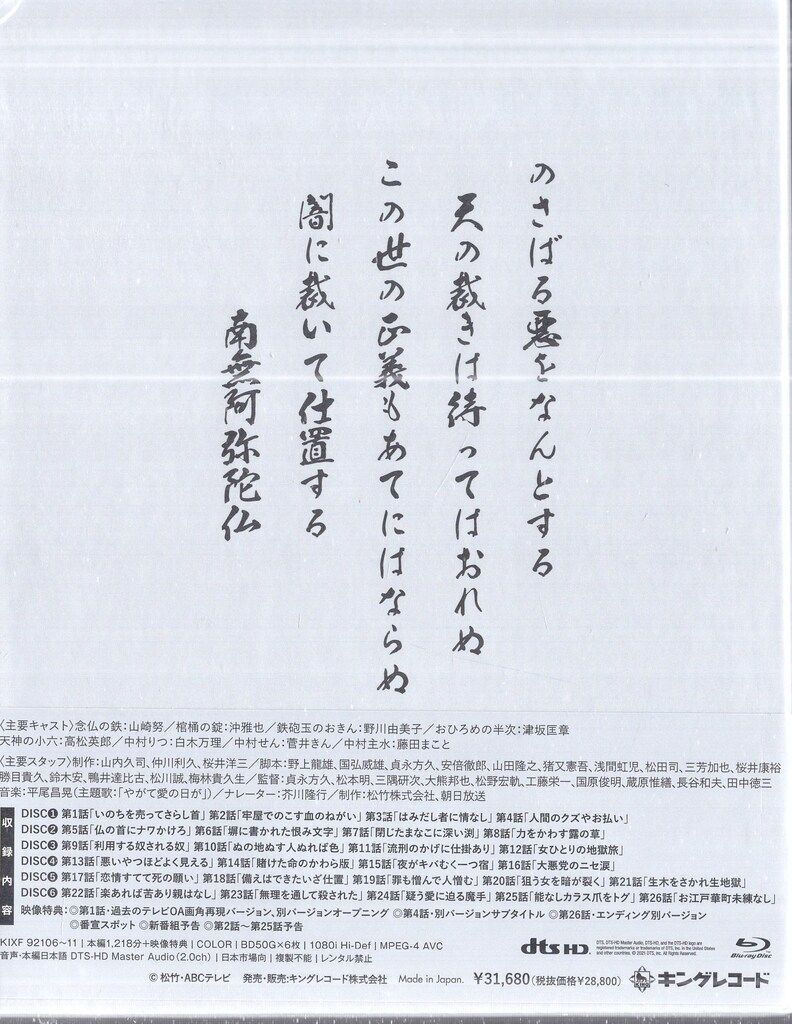 のさばる悪をなんとする
天の裁きは待ってはおれぬ
この世の正義もあてにはならぬ
闇に裁いて仕置する
南無阿弥陀仏
〈主要キャスト〉念仏の鉄：山崎努／棺桶の錠：沖雅也／鉄砲玉のおきん：野川由美子／おひろめの半次：津坂匡章
天神の小六：高松英郎／中村りつ：白木万理／中村せん：菅井きん／中村主水：藤田まこと
〈主要スタッフ〉制作：山内久司、仲川利久、桜井洋三／脚本：野上龍雄、国弘威雄、貞永方久、安倍徹郎、山田隆之、猪又憲吾、浅間虹児、松田司、三芳加也、桜井康裕
勝目貴久、鈴木安、鴨井達比古、松川誠、梅林貴久生／監督：貞永方久、松本明、三隅研次、大熊邦也、松野宏軌、工藤栄一、国原俊明、蔵原惟繕、長谷和夫、田中徳三
音楽：平尾昌晃（主題歌：「やがて愛の日が」）／ナレーター：芥川隆行／制作：松竹株式会社、朝日放送
収録内容
DISC❶ 第1話「いのちを売ってさらし首」 第2話「牢屋でのこす血のねがい」 第3話「はみだし者に情なし」 第4話「人間のクズやお払い」
DISC❷ 第5話「仏の首にナワかけろ」 第6話「塀に書かれた恨み文字」 第7話「閉じたまなこに深い渕」 第8話「力をかわす露の草」
DISC❸ 第9話「利用する奴される奴」 第10話「ぬの地ぬす人ぬれば色」 第11話「流刑のかげに仕掛あり」 第12話「女ひとりの地獄旅」
DISC❹ 第13話「悪いやつほどよく見える」 第14話「賭けた命のかわら版」 第15話「夜がキバむく一つ宿」 第16話「大悪党のニセ涙」
DISC❺ 第17話「恋情すてて死の願い」 第18話「備えはできたいざ仕置」 第19話「罪も憎んで人憎む」 第20話「狙う女を暗が裂く」 第21話「生木をさかれ生地獄」
DISC❻ 第22話「楽あれば苦あり親はなし」 第23話「無理を通して殺された」 第24話「疑う愛に迫る魔手」 第25話「能なしカラス爪をトグ」 第26話「お江戸華町未練なし」
映像特典：◎第1話・過去のテレビOA画再現バージョン、別バージョンオープニング ◎第4話・別バージョンサブタイトル ◎第26話・エンディング別バージョン
◎番宣スポット ◎新番組予告 ◎第2話〜第25話予告
KIXF 92106~11｜本編1,218分+映像特典｜COLOR｜BD50G×6枚｜1080i Hi-Def｜MPEG-4 AVC
音声・本編日本語 DTS-HD Master Audio（2.0ch）｜日本市場向｜複製不能｜レンタル禁止
dts HD
DTS, DTS-HD Master Audio, DTS-HD, and the DTS-HD logo are
registered trademarks or trademarks of DTS, Inc. in the United States
and other countries. © 2021 DTS, Inc. All Rights Reserved.
Blu-ray Disc
© 松竹・ABCテレビ 発売・販売：キングレコード株式会社 Made in Japan. ¥31,680（税抜価格¥28,800） キングレコード